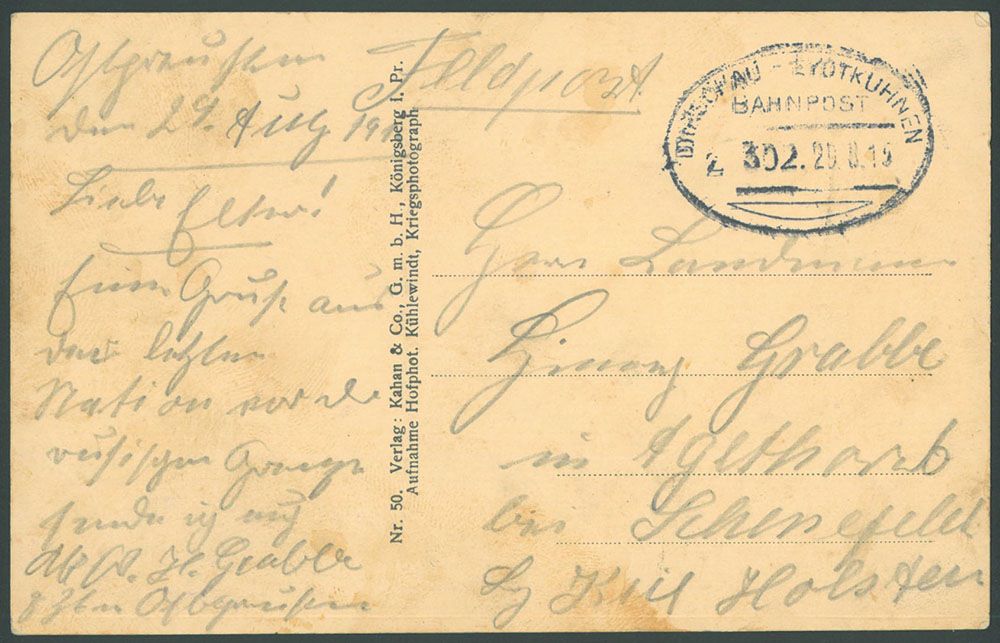 Ostpreußen
den 29. Aug 191
Liebe Eltern!
Einen Gruß aus
der letzten
Station vor der
rusischen Grenze
sende ich euch
H. Grabbe
Ostpreußen
Nr. 50. Verlag: Kahan & Co., G. m. b. H., Königsberg I. Pr.
Aufnahme Hofphot. Kühlewindt, Kriegsphotograph.
Feldpost
DIRSCHAU - EYDTKUHNEN
BAHNPOST
Z 302. 29.8.15
Herr Landmann
Hinrg Grabbe
in
bei Schenefeld
Bz Kiel Holsten